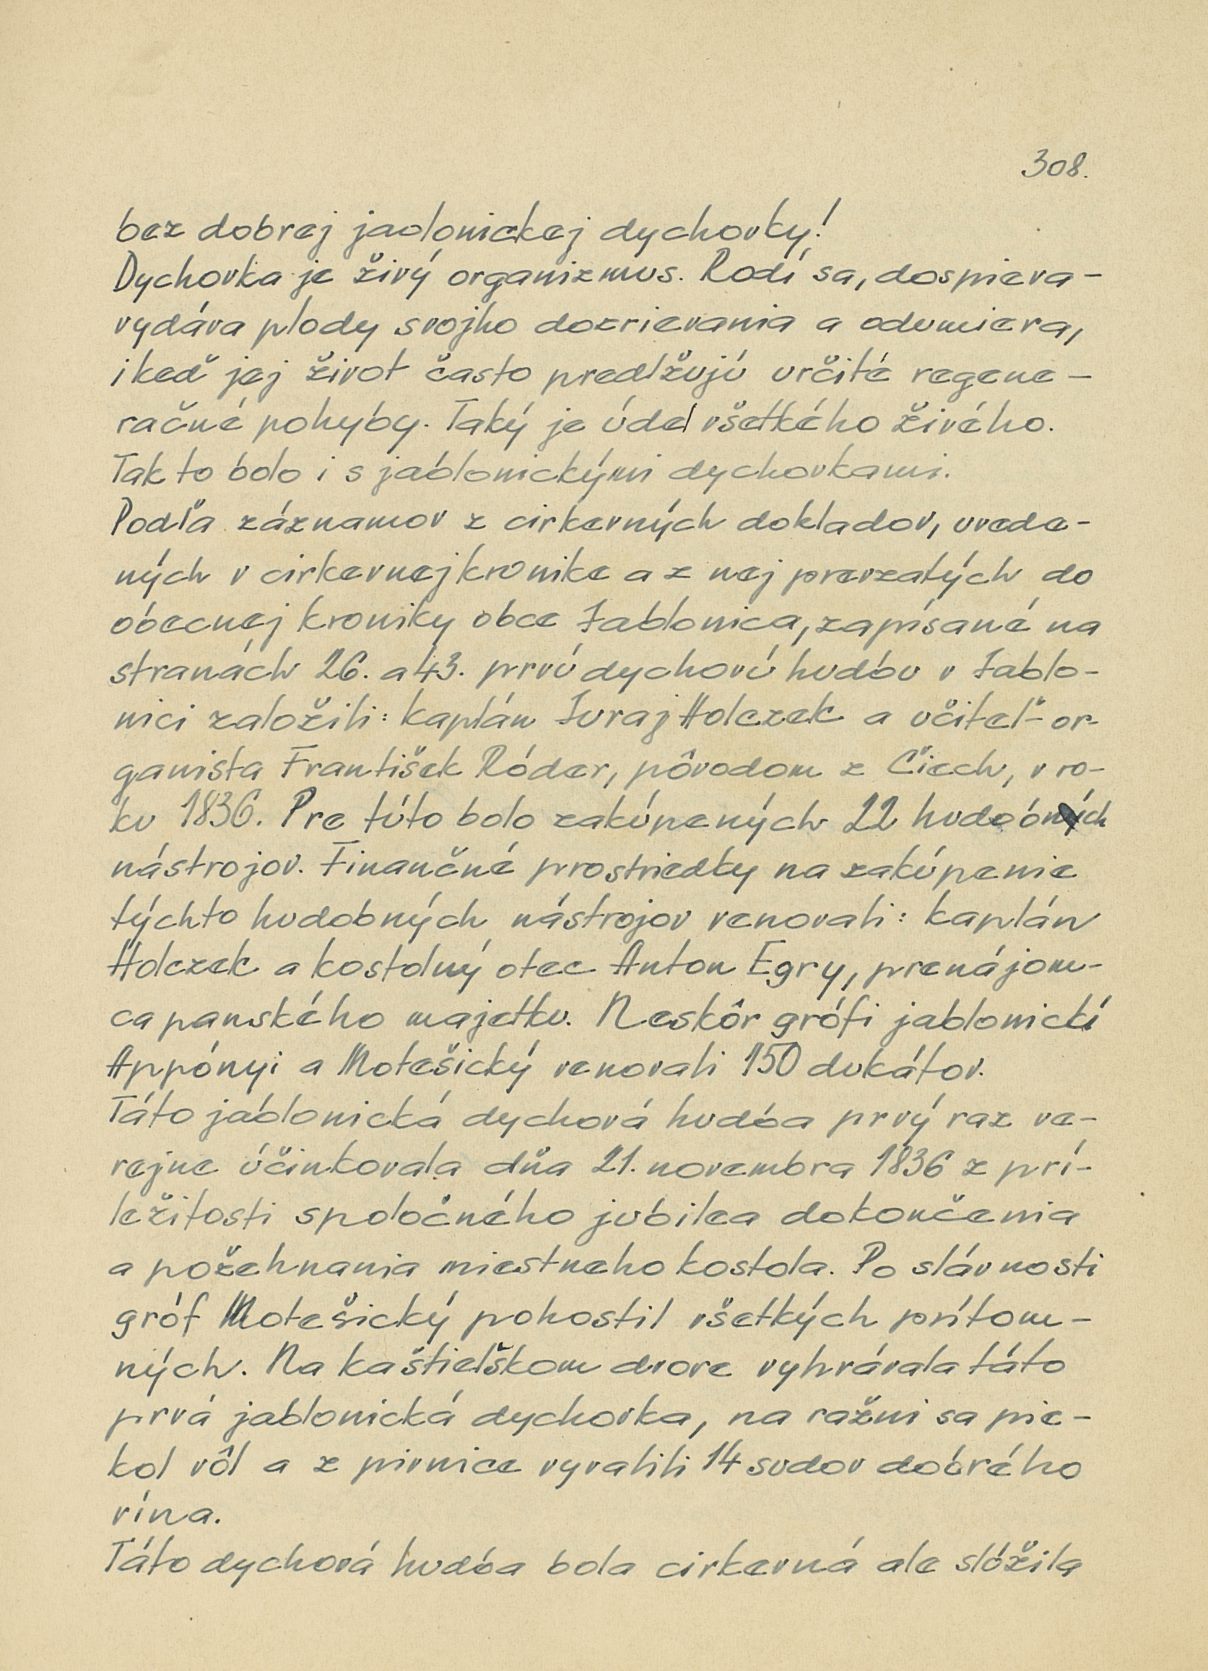 308.
bez dobrej jablonickej dychovky!
Dychovka je živý organizmus. Rodí sa, dospieva-
vydáva plody svojho dozrievania a odumiera,
i keď jej život často predlžujú určité regene-
račné pohyby. Taký je údel všetkého živého.
Tak to bolo i s jablonickými dychovkami.
Podľa záznamov z cirkevných dokladov, uvede-
ných v cirkevnej kronike a z nej prevzatých do
obecnej kroniky obce Jablonica, zapísané na
stranách 26. a 43. prvú dychovú hudbu v Jablo-
nici založili: kaplán Juraj Holczek a učiteľ-or-
ganista František Róder, pôvodom z Čiech, v ro-
ku 1836. Pre túto bolo zakúpených 22 hudobných
nástrojov. Finančné prostriedky na zakúpenie
týchto hudobných nástrojov venovali: kaplán
Holczek a kostolný otec Anton Egry, prenájom-
ca panského majetku. Neskôr grófi jablonickí
Appónyi a Motešický venovali 150 dukátov.
Táto jablonická dychová hudba prvý raz ve-
rejne účinkovala dňa 21. novembra 1836 z prí-
ležitosti spoločného jubilea dokončenia
a požehnania miestneho kostola. Po slávnosti
gróf Motešický pohostil všetkých prítom-
ných. Na kaštieľskom dvore vyhrávala táto
prvá jablonická dychovka, na ražni sa pie-
kol vôl a z pivnice vyvalili 14 sudov dobrého
vína.
Táto dychová hudba bola cirkevná ale slóžila